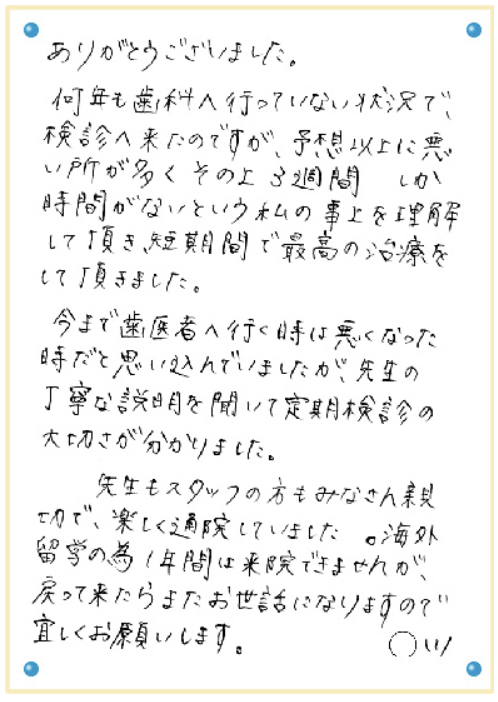 ありがとうございました。
何年も歯科へ行っていない状況で、
検診へ来たのですが、予想以上に悪
い所が多く その上 3週間 しか
時間がないという私の事上を理解
して頂き、短期間で最高の治療を
して頂きました。
今まで歯医者へ行く時は悪くなった
時だと思い込んでいましたが、先生の
丁寧な説明を聞いて定期検診の
大切さが分かりました。
先生もスタッフの方もみなさん親
切で、楽しく通院していました。海外
留学の為1年間は来院できませんが、
戻って来たらまたお世話になりますので
宜しくお願いします。